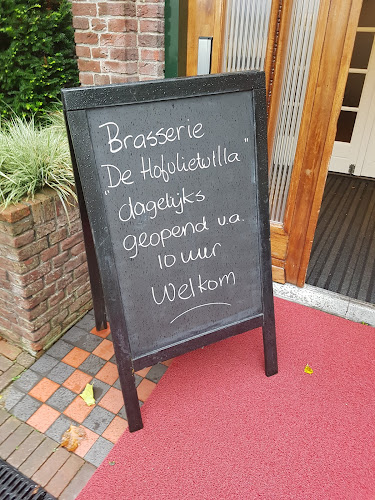 Brasserie
"De Hofvlietvilla"
dagelijks
geopend v.a.
10 uur
Welkom